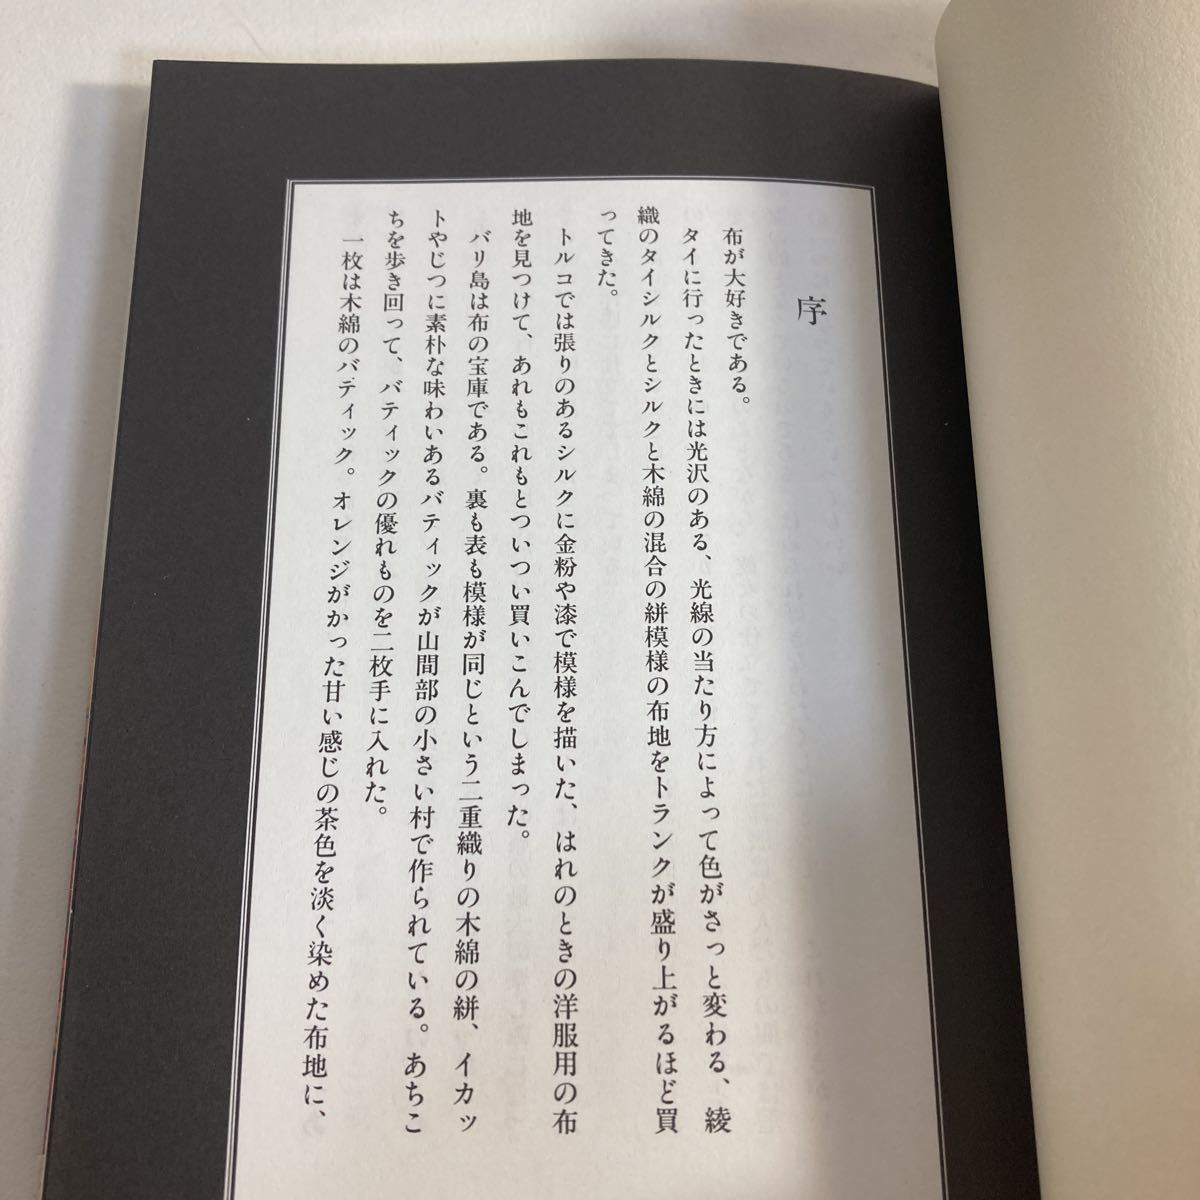 序
布が大好きである。
タイに行ったときには光沢のある、光線の当たり方によって色がさっと変わる、綾
織のタイシルクとシルクと木綿の混合の絣模様の布地をトランクが盛り上がるほど買
ってきた。
トルコでは張りのあるシルクに金粉や漆で模様を描いた、はれのときの洋服用の布
地を見つけて、あれもこれもとついつい買いこんでしまった。
バリ島は布の宝庫である。裏も表も模様が同じという二重織りの木綿の絣、イカッ
トやじつに素朴な味わいあるバティックが山間部の小さい村で作られている。あちこ
ちを歩き回って、バティックの優れものを二枚手に入れた。
一枚は木綿のバティック。オレンジがかった甘い感じの茶色を淡く染めた布地に、